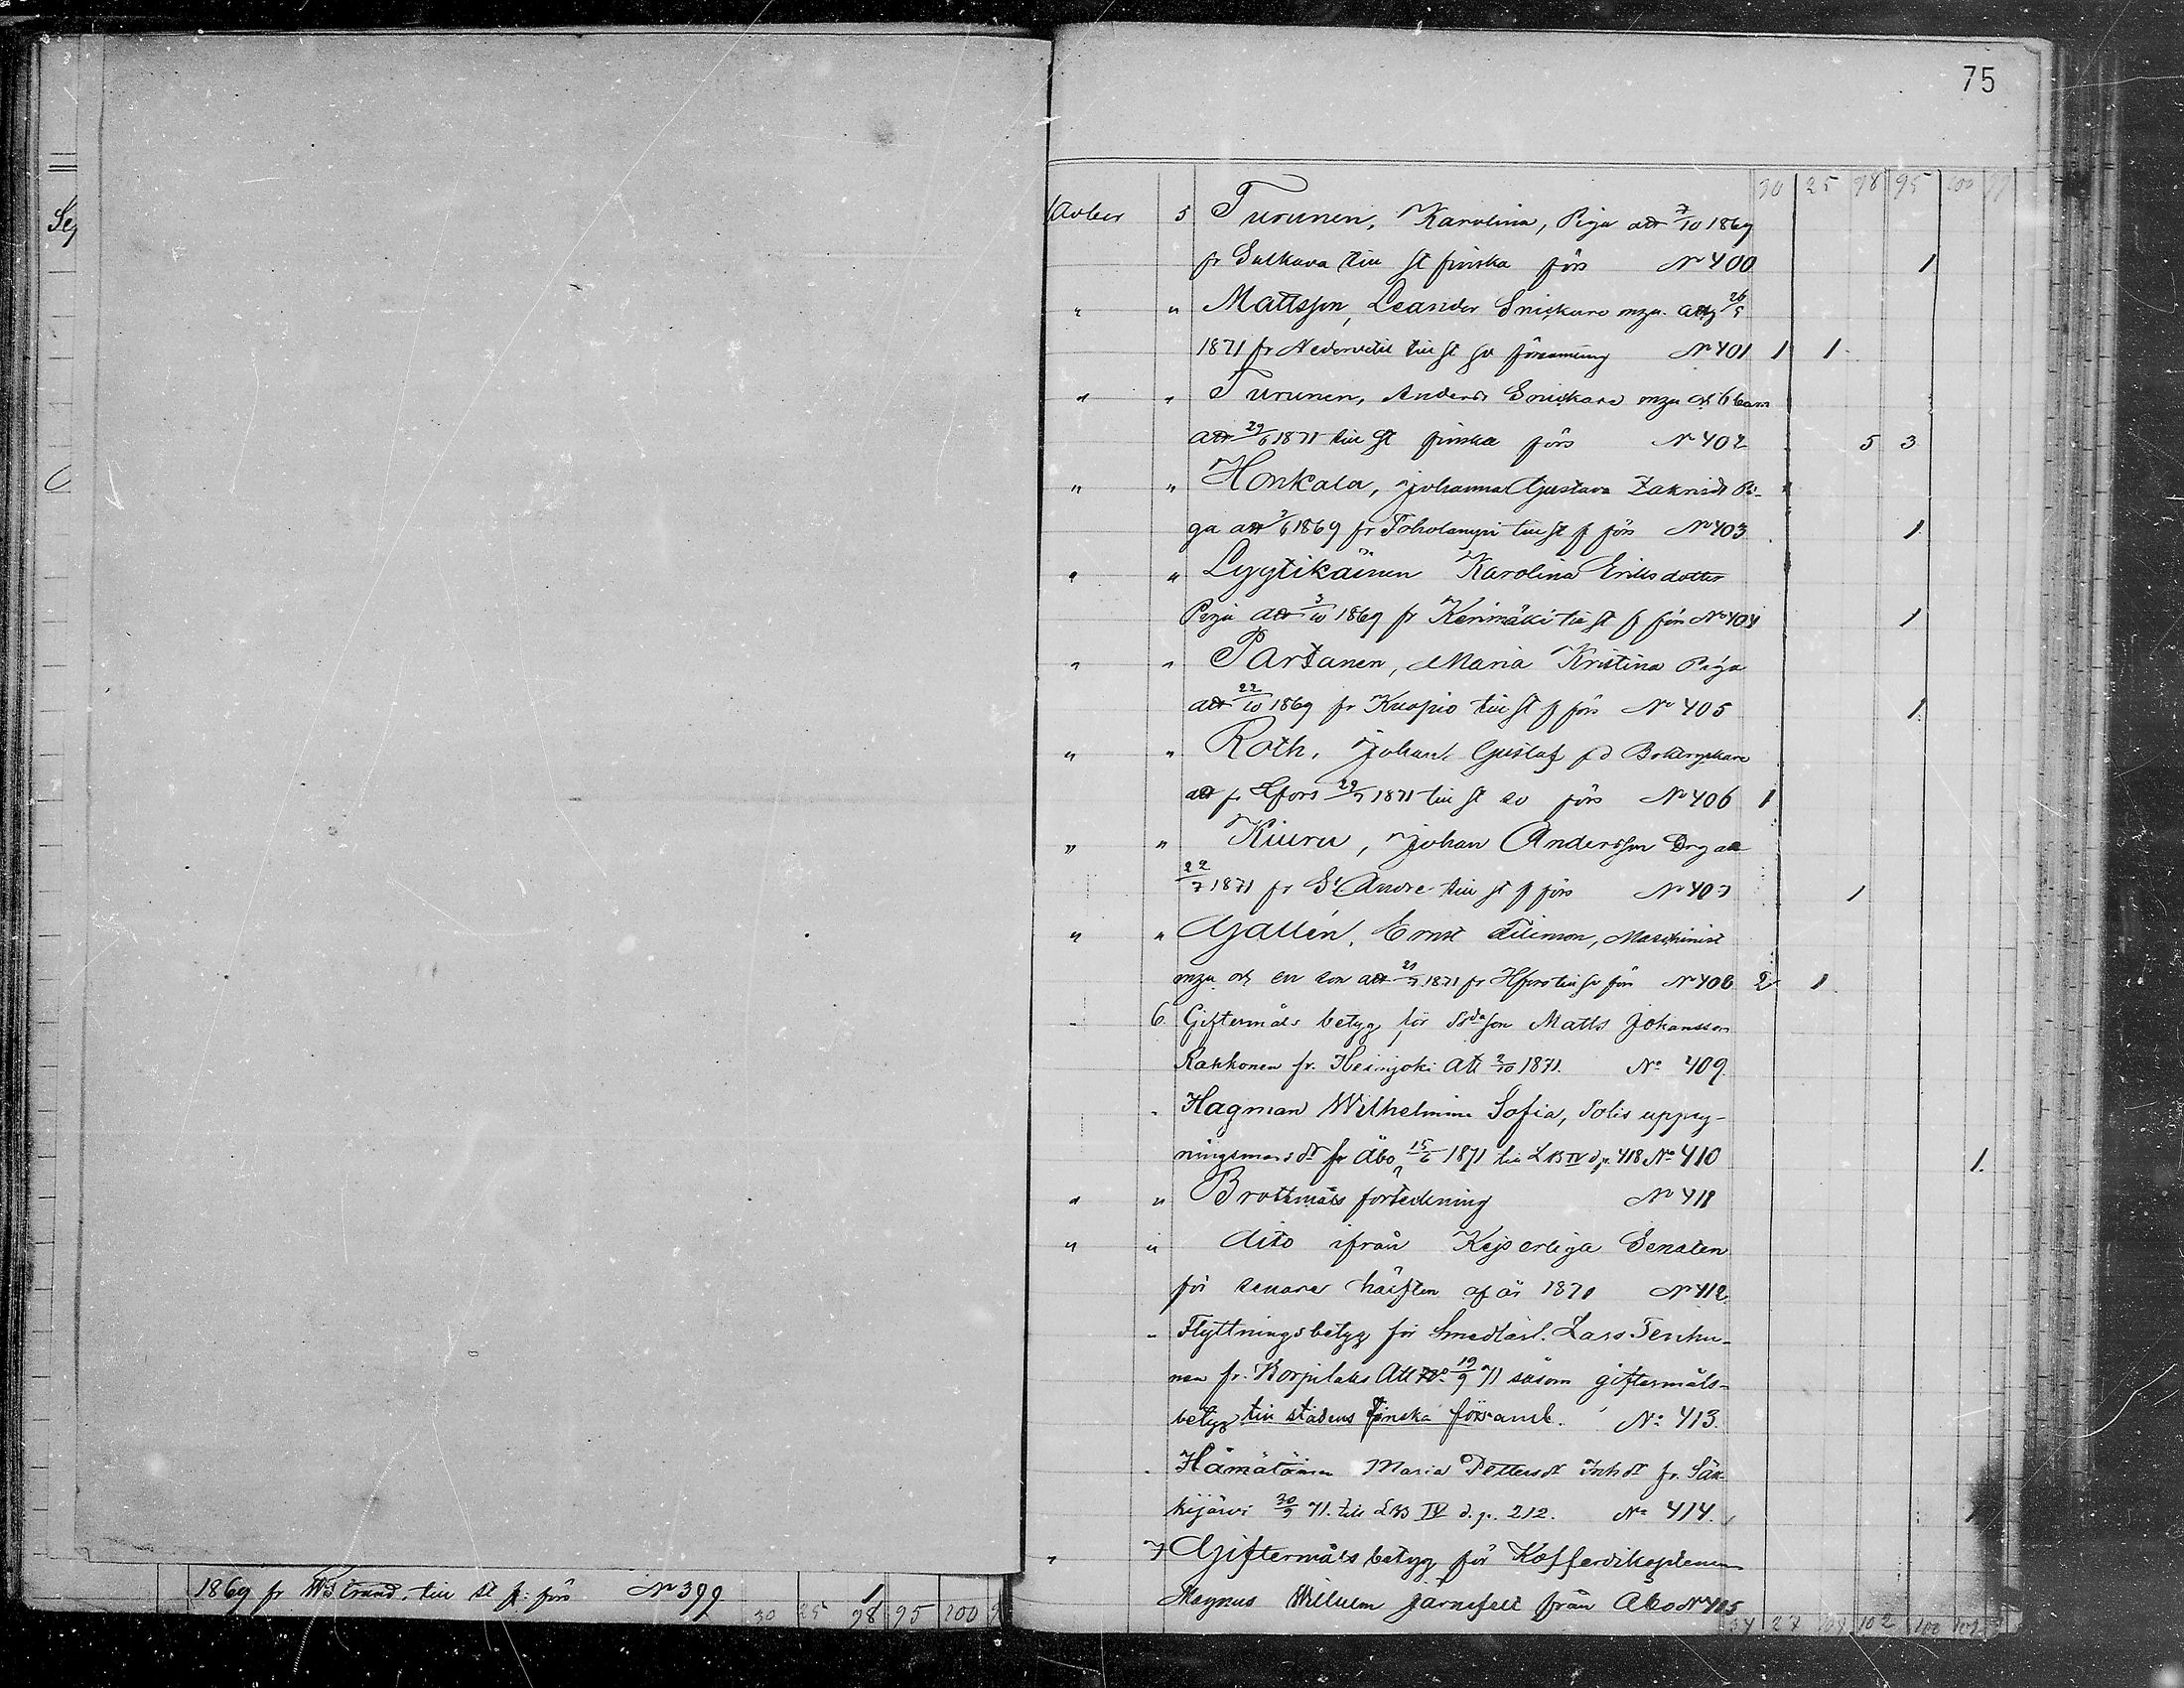 75
30 25 98 95 100
Octber 5 Turunen, Karolina, Piga att 7/10 1869
fr Sulkava till st finska förs No 400 1
" " Mattsson, Leander Snickare m.fru attg 26/5
1871 fr Nedervetil till st sv församling No 401 1 1
" " Turunen, Anders Snickare m.fru och 6 barn
att 29/6 1871 till st finska förs No 402 5 3
" " Honkala, Johanna Gustava Zakrisdr Pi-
ga att 3/6 1869 fr Toholampi till st f förs No 403 1
" " Lyytikäinen Karolina Eriksdotter
Piga att 3/10 1869 fr Kerimäki till st f förs No 404 1
" " Partanen, Maria Kristina Piga
att 22/10 1869 fr Kuopio till st f förs No 405 1
" " Roth, Johan Gustaf fd Boktryckare
att fr Hfors 29/7 1871 till st sv förs No 406 1
" " Kiuru, Johan Andersson Drg att
22/7 1871 fr St Andre till st f förs No 407 1
" " Gallén, Ernst Filimon, Maschinist
m.fru och en son att 21/7 1871 fr Hfors till sv förs No 408 2 1
" 6 Giftermåls betyg för Bdeson Matts Johansson
Rakkonen fr. Heinjoki att 2/10 1871. No 409.
" Hagman Wilhelmina Sofia, Polis uppsy-
ningsmansdr fr Åbo 15/6 1871 till LBIV d. p. 418 No 410 1.
" " Brottmåls förteckning No 411
" " dito ifrån Kejserliga Senaten
för senare hälften af år 1870 No 412
" Flyttningsbetyg för Smedlärl. Lars Tenhu-
nen fr. Korpilaks Att 19/9 71 såsom giftermåls-
betyg till stadens Finska församl. No 413.
" Hämäläinen Maria Pettersdr Inhdr fr. Säk-
kijärvi 30/9 71. till LBB IV d. p. 212. No 414. 1
" 7 Giftermåls betyg för Kofferdikaptenen
Magnus Wilhelm Järnefelt från Åbo No 415
34 27 104 102 100 102
Sep
1869 fr W:Strand, till st f: förs No 399 1
30 25 98 95 100